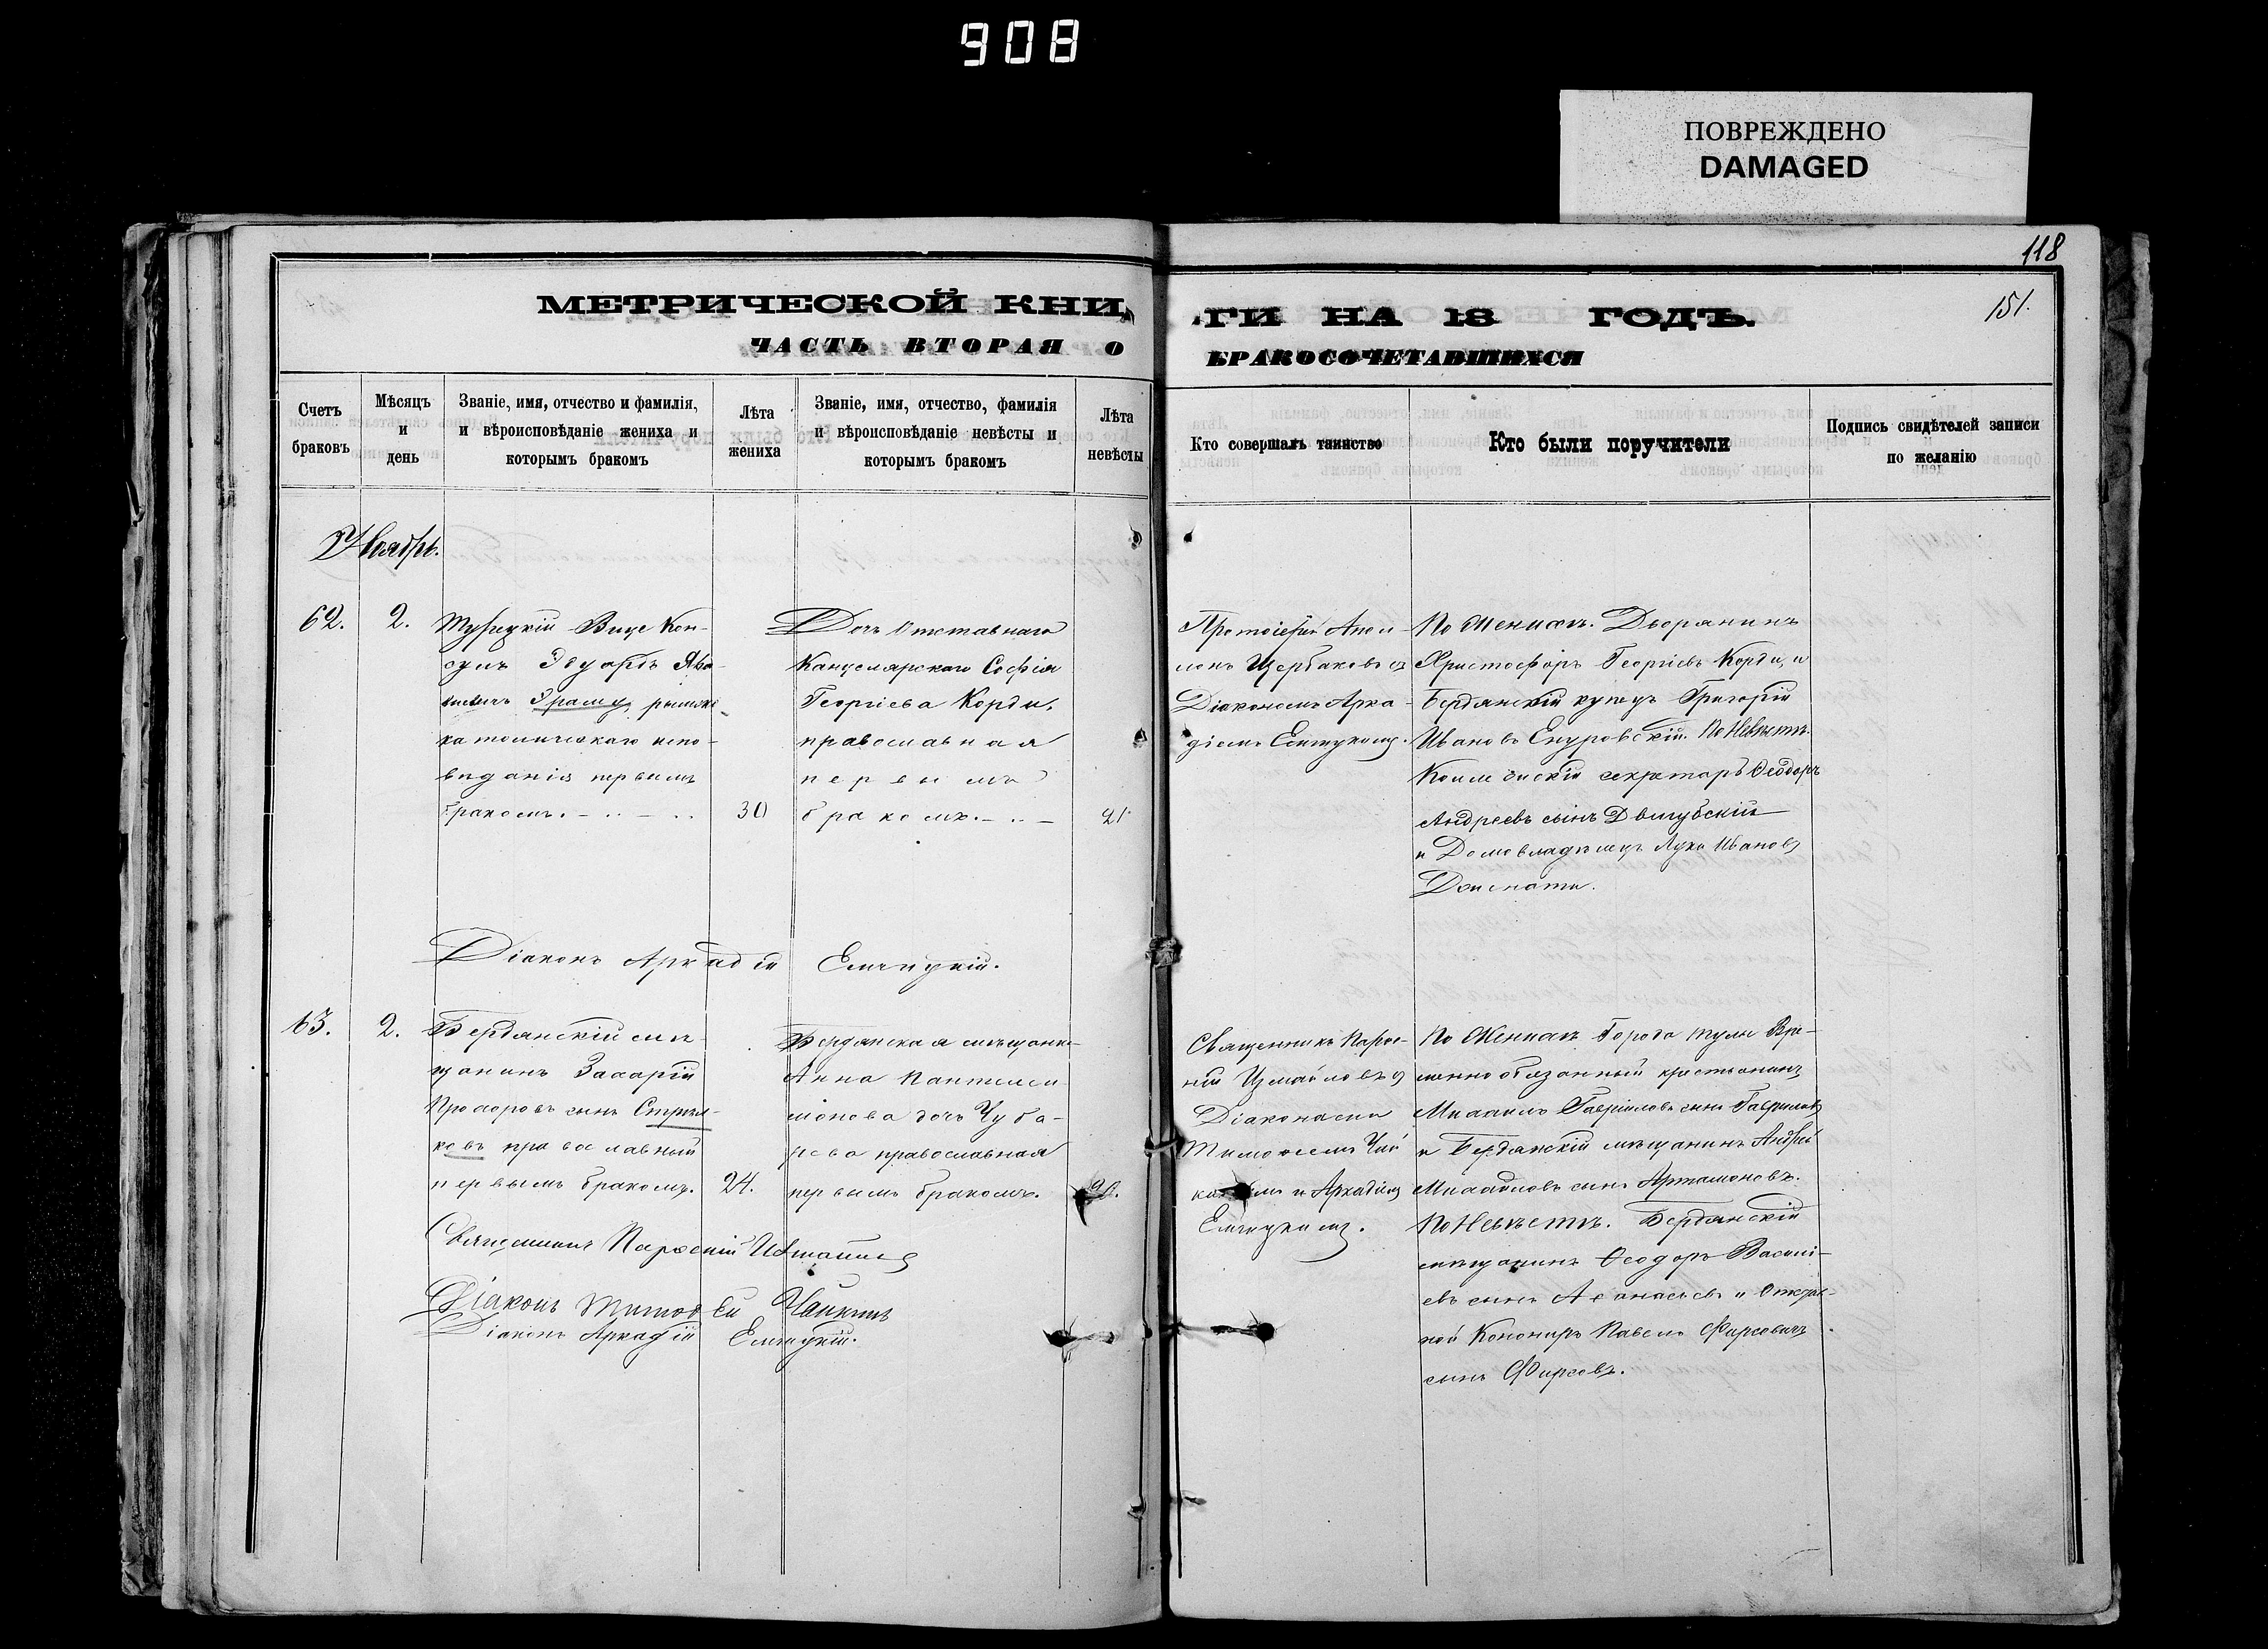 908
ПОВРЕЖДЕНО
DAMAGED
118
151.
МЕТРИЧЕСКОЙ КНИ
ГИ НА 18 ГОДЪ.
ЧАСТЬ ВТОРАЯ О
БРАКОСОЧЕТАВШИХСЯ
Счетъ браковъ
Мѣсяцъ и день
Званіе, имя, отчество и фамилія, и вѣроисповѣданіе жениха и которымъ бракомъ
Лѣта жениха
Званіе, имя, отчество, фамилія и вѣроисповѣданіе невѣсты и которымъ бракомъ
Лѣта невѣсты
Кто совершалъ таинство
Кто были поручители
Подпись свидѣтелей записи по желанію
Ноябрь.
62.
2.
Турецкій Вице Кон-
сулъ Эдуардъ
римско-
католическаго испо-
вѣданія первымъ
бракомъ.
30
Дочь Отставнаго
Канцелярскаго Софія
Георгіева Корди,
православная
первымъ
бракомъ.
21
Протоіерей Апол-
лонъ Щербаковъ съ
Діакономъ Арка-
діемъ
По Женихѣ. Дворянинъ
Христофоръ Георгіевъ Корди, и
Бердянскій купецъ Григорій
Ивановъ По Невѣстѣ.
секретарь Ѳеодоръ
Андреевъ сынъ
и Домовладѣлецъ Лука Ивановъ
Діаконъ Аркадій
63.
2.
Бердянскій мѣ-
щанинъ Захарій
Прохоровъ сынъ Стрѣл-
ковъ православный
первымъ бракомъ.
24.
Бердянская мѣщанка
Анна Пантелеи-
монова дочь Чуба-
рева православная
первымъ бракомъ.
Священникъ Парѳе-
ній Измайловъ съ
Діаконами
Тимоѳеемъ Чай
и Аркадіемъ
По Женихѣ Города Тулы Вре-
менно обязанный крестьянинъ
Михаилъ Гавріиловъ сынъ Гавриловъ
и Бердянскій мѣщанинъ Андрей
Михайловъ сынъ Артамоновъ.
По Невѣстѣ. Бердянскій
мѣщанинъ Ѳеодоръ Василі-
евъ сынъ Аѳанасьевъ и Отстав-
ной Канониръ Павелъ Фирсовичъ
сынъ Фирсовъ.
Священникъ Парѳеній Измайловъ
Діаконъ Тимоѳей
Діаконъ Аркадій